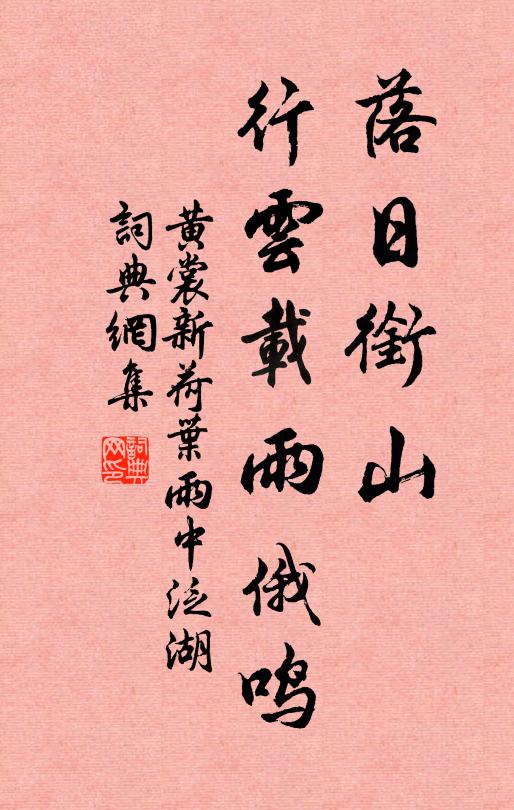 落日銜山
行雲載雨俄鸣
黄裳新荷葉雨中泛湖
詞典網集
詞典
网印